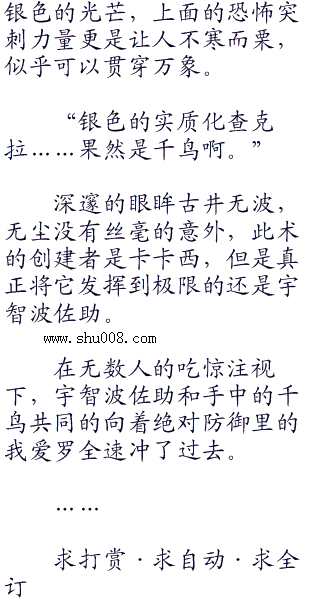 银色的光芒，上面的恐怖突
刺力量更是让人不寒而栗，
似乎可以贯穿万象。
“银色的实质化查克
拉……果然是千鸟啊。”
深邃的眼眸古井无波，
无尘没有丝毫的意外，此术
的创建者是卡卡西，但是真
正将它发挥到极限的还是宇
智波佐助。
www.shu008.com
在无数人的吃惊注视
下，宇智波佐助和手中的千
鸟共同的向着绝对防御里的
我爱罗全速冲了过去。
……
求打赏·求自动·求全
订